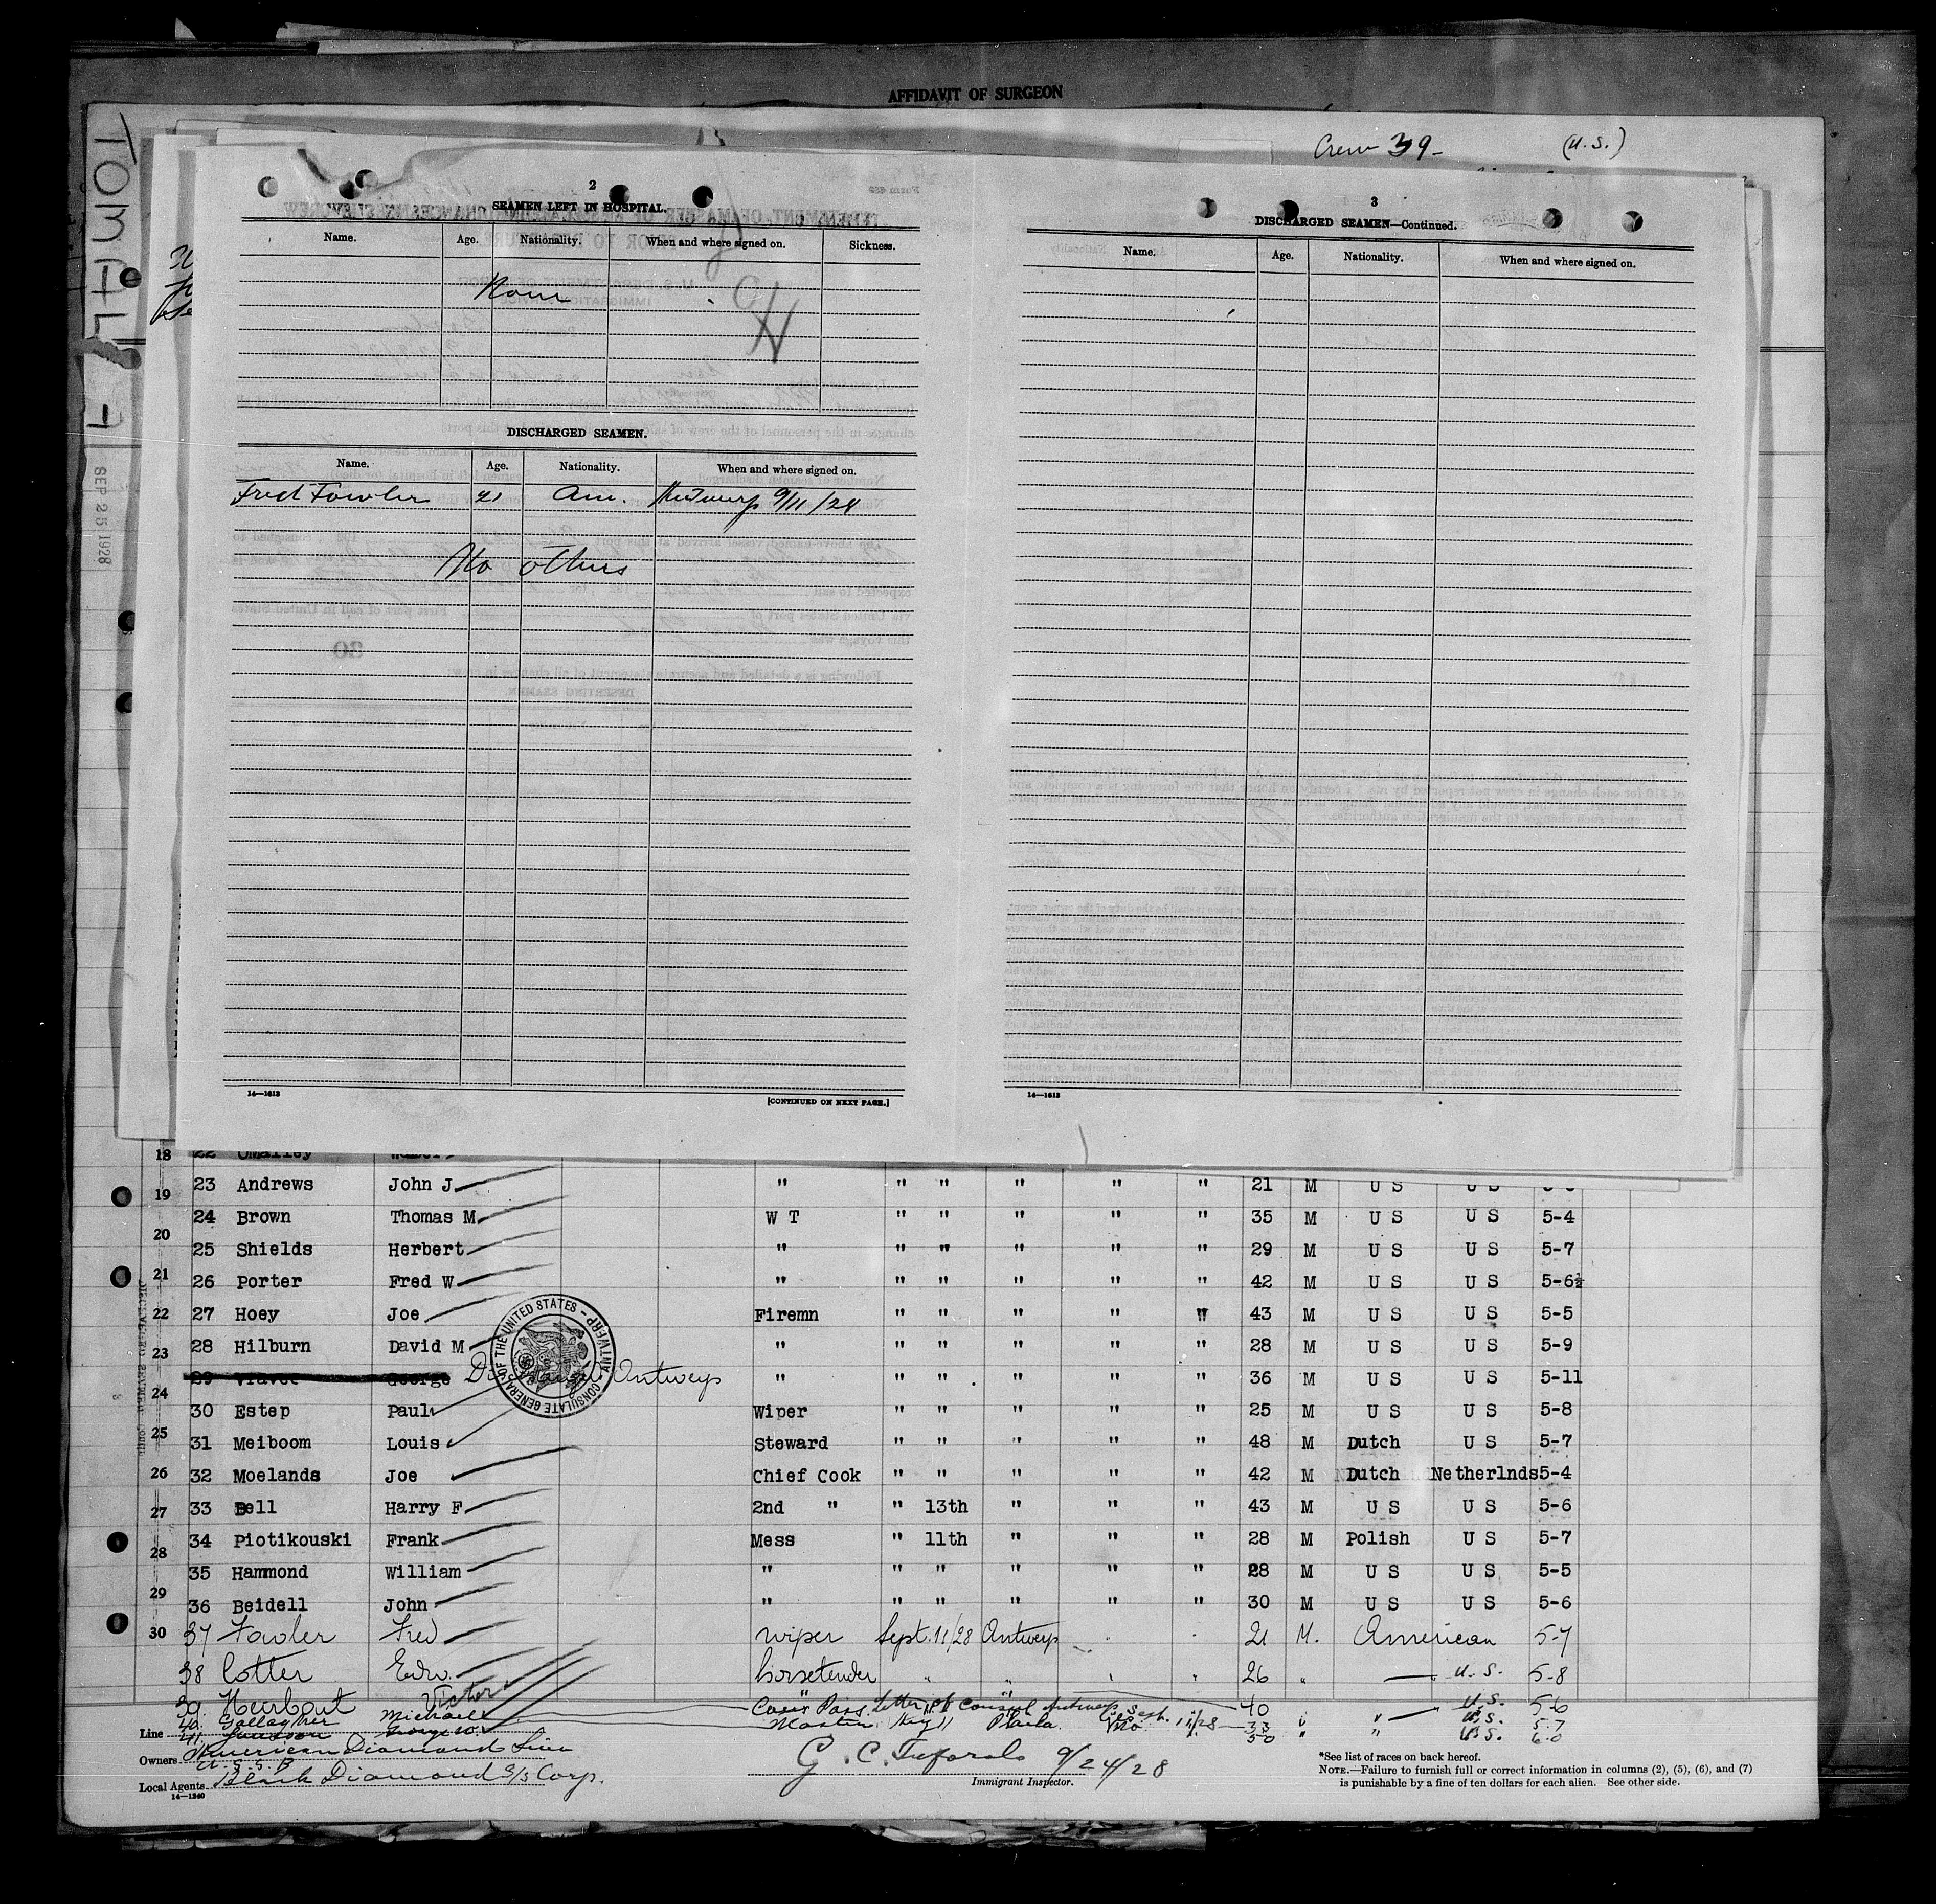 AFFIDAVIT OF SURGEON
Crew 39- (U.S.)
TOMALVA
SEP 25 1928
2
SEAMEN LEFT IN HOSPITAL.
Name. Age. Nationality. When and where signed on. Sickness.
None
DISCHARGED SEAMEN.
Name. Age. Nationality. When and where signed on.
Fred Fowler 21 Am. Antwerp 9/11/28
No others
14—1613
[CONTINUED ON NEXT PAGE.]
3
DISCHARGED SEAMEN—Continued.
Name. Age. Nationality. When and where signed on.
14—1613
18 22 OMalley
19 23 Andrews John J " " " " " " 21 M U S U S
24 Brown Thomas M W T " " " " " 35 M U S U S 5-4
20 25 Shields Herbert " " " " " " 29 M U S U S 5-7
21 26 Porter Fred W " " " " " " 42 M U S U S 5-6½
22 27 Hoey Joe Firemn " " " " " 43 M U S U S 5-5
23 28 Hilburn David M " " " " " " 28 M U S U S 5-9
29 George Antwerp " " " " " " 36 M U S U S 5-11
24 30 Estep Paul Wiper " " " " " 25 M U S U S 5-8
25 31 Meiboom Louis Steward " " " " " 48 M Dutch U S 5-7
26 32 Moelands Joe Chief Cook " " " " " 42 M Dutch Netherlnds 5-4
27 33 Bell Harry F 2nd " " 13th " " " 43 M U S U S 5-6
28 34 Piotikouski Frank Mess " 11th " " " 28 M Polish U S 5-7
35 Hammond William " " " " " " 28 M U S U S 5-5
29 36 Beidell John " " " " " " 30 M U S U S 5-6
30 37 Fowler Fred wiper Sept. 11/28 Antwerp " " 21 M. American 5-7
38 Cotter Edw. horsetender " " " " 26 " U.S. 5-8
39. Heerbout Victor " " 40 U.S. 5-6
40. Gallagher Michael Cons Pass. Letter of Consul Antwerp Sept. 11/28 33 " " U.S. 5-7
41. George W. Master May 11 Phila. 50 " " U.S. 6-0
CONSULATE GENERAL OF THE UNITED STATES - ANTWERP -
Line American Diamond Line
Owners U.S.S.B
Local Agents Black Diamond S/S Corp.
14—1240
9/24/28
Immigrant Inspector.
*See list of races on back hereof.
NOTE.—Failure to furnish full or correct information in columns (2), (5), (6), and (7)
is punishable by a fine of ten dollars for each alien. See other side.